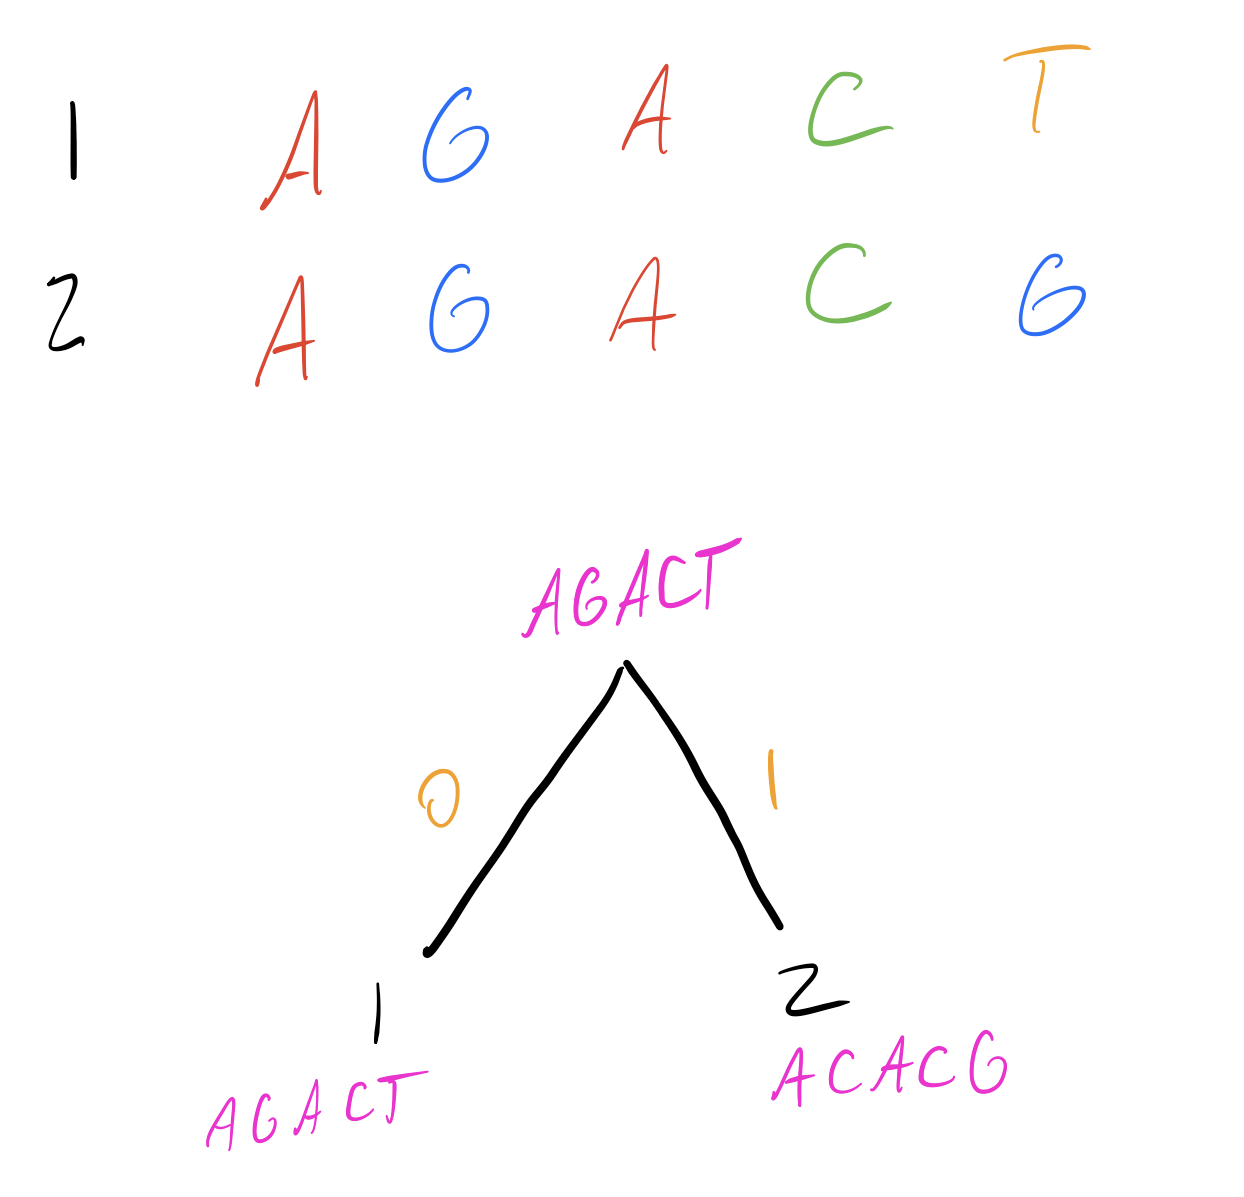 1 A G A C T
2 A G A C G
AGACT
0 1
1 2
AGACT ACACG